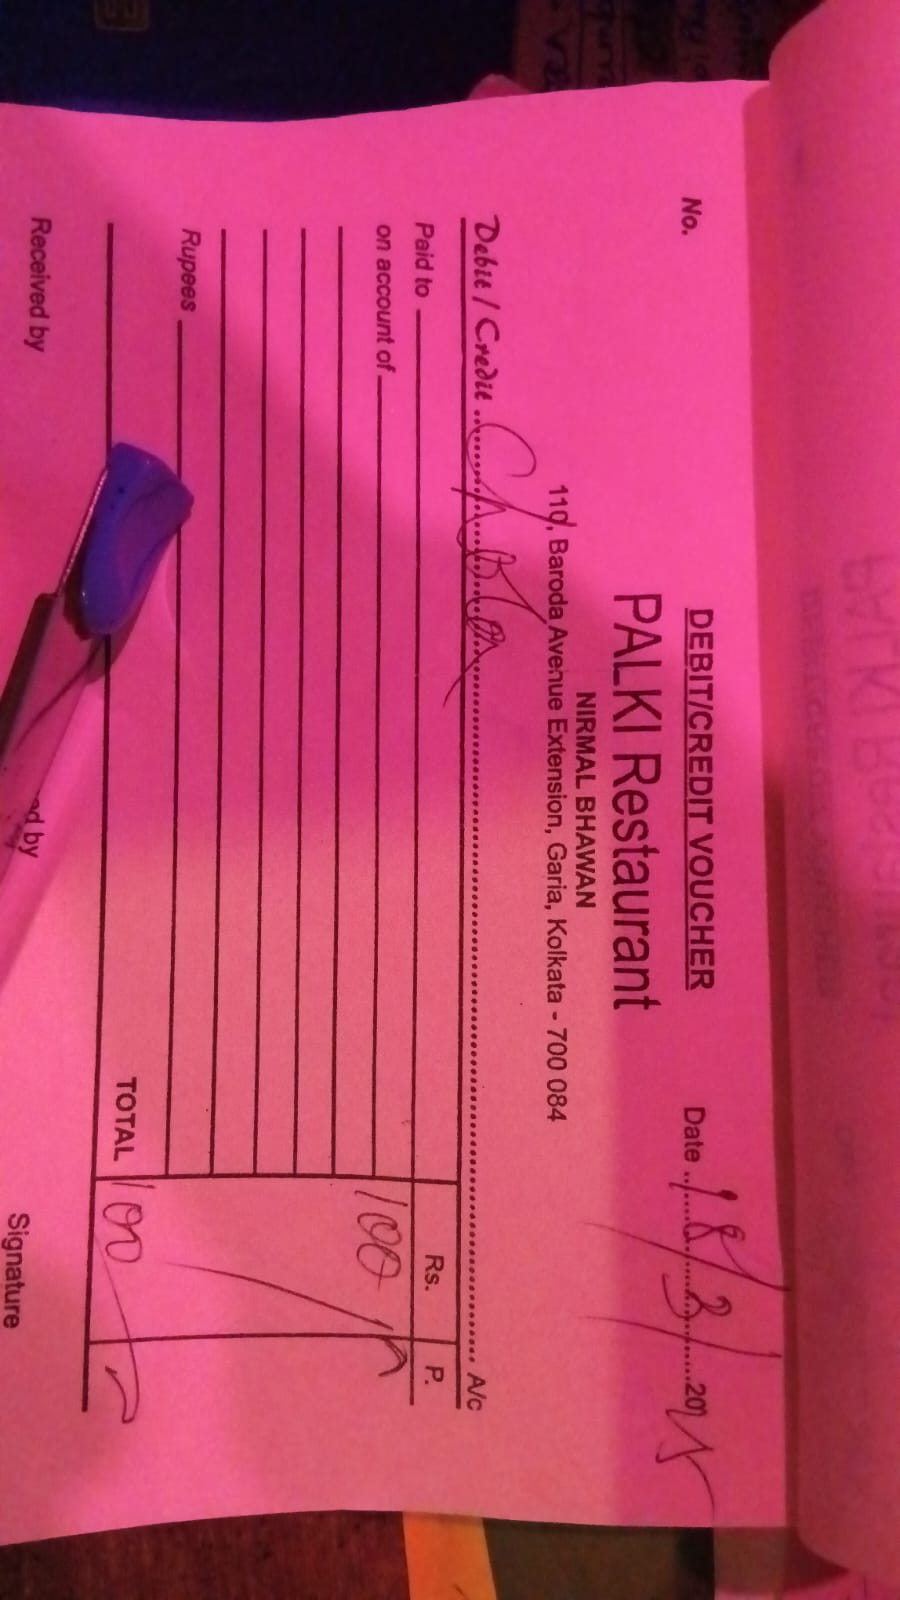 DEBIT/CREDIT VOUCHER
No.
Date 18/3/2025
PALKI Restaurant
NIRMAL BHAWAN
110, Baroda Avenue Extension, Garia, Kolkata - 700 084
Debit / Credit A/c
Paid to Rs. P.
on account of 100/-
Rupees
TOTAL 100/-
Received by
ed by
Signature